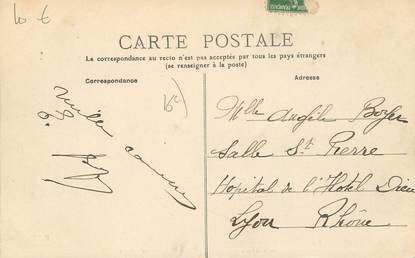 10 €
CARTE POSTALE
La correspondance au recto n'est pas acceptée par tous les pays étrangers
(se renseigner à la poste)
Correspondance
Adresse
mille
Mlle Angèle
Salle St Pierre
Hôpital de l'Hotel Dieu
Lyon Rhône